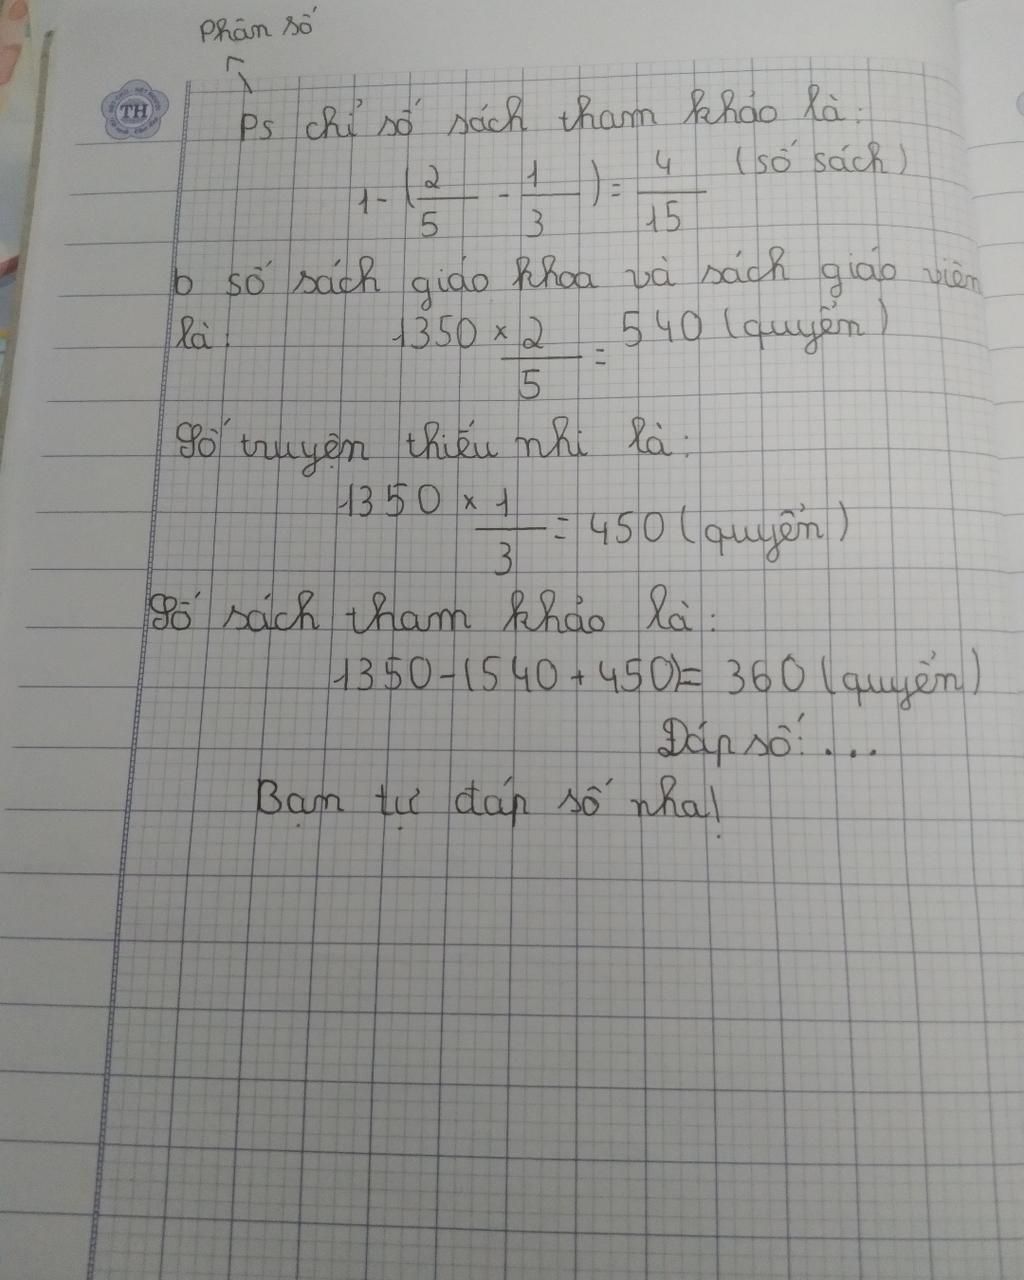 Phân số
Ps chỉ số sách tham khảo là:
1 - ( 2/5 - 1/3 ) = 4/15 (số sách)
b số sách giáo khoa và sách giáo viên
là: 1350 × 2/5 = 540 (quyển)
Số truyện thiếu nhi là:
1350 × 1/3 = 450 (quyển)
Số sách tham khảo là:
1350 - (540 + 450) = 360 (quyển)
Đáp số: ...
Bạn tự đáp số nha!
TH